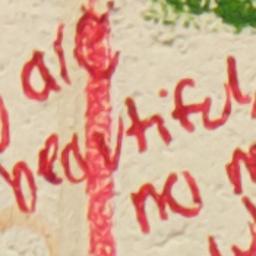 are
beautiful,
no